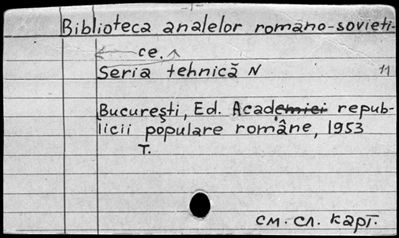 -1-
Biblioteca analelor romano-sovieti-
ce.
Seria tehnică N 11
București, Ed. Academiei repub-
licii populare romậne, 1953
T.
см. сл. карт.